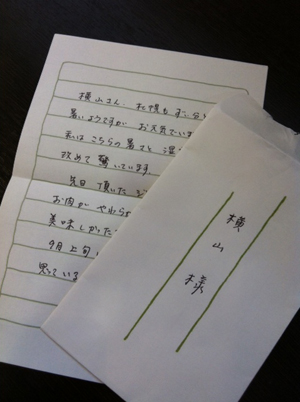 横山さん、札幌もずい分と
暑いようですが お元気でいま
私は こちらの暑さと 湿
改めて 驚いています。
先日 頂いた ジ
お肉が やわらか
美味しかった
9月上旬
思っている
横山様